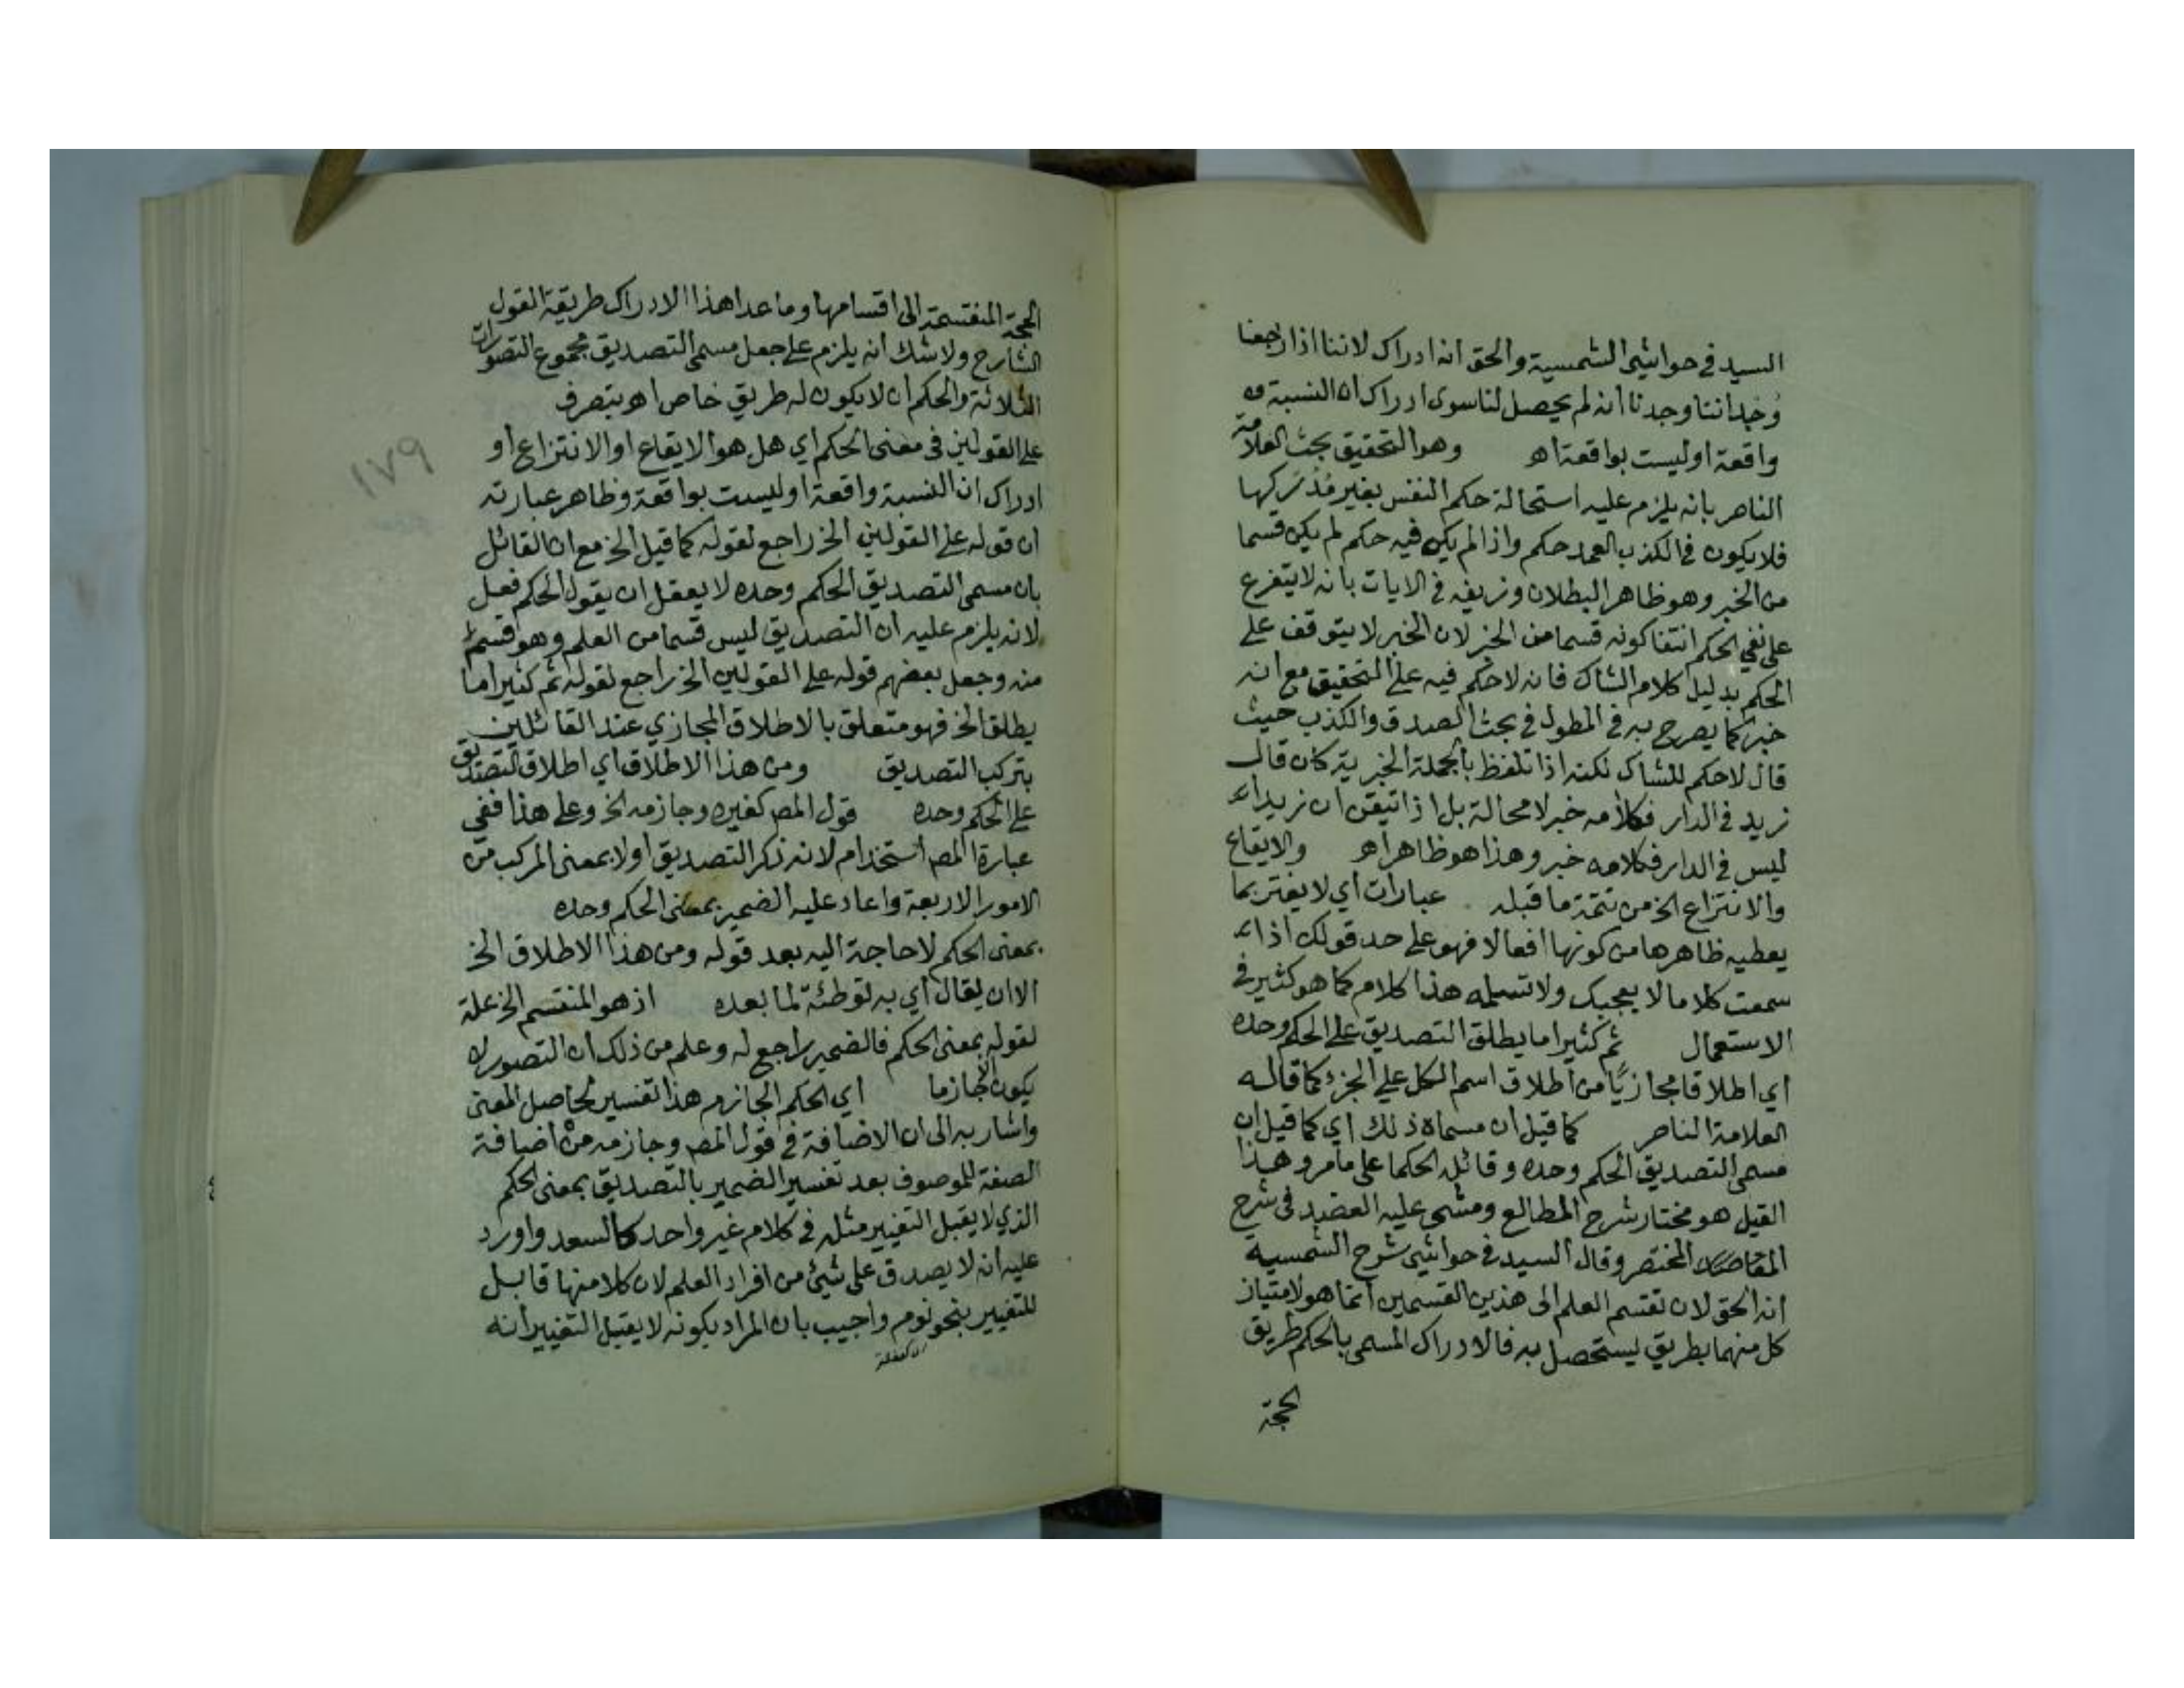 السيد في حواشي الشمسية والحق انه ادراك لاننا اذا رجعنا
وُجداننا وجدنا انه لم يحصل لنا سوى ادراك ان النسبة
واقعة او ليست بواقعة اهـ وهو التحقيق بحث العلامة
الناصر بانه يلزم عليه استحالة حكم النفس بغير مُدْرَكها
فلا يكون في الكذب العمد حكم واذا لم يكن فيه حكم لم يكن قسما
من الخبر وهو ظاهر البطلان وزيفه في الايات بانه لا يتفرع
على نفي الحكم انتفا كونه قسما من الخبر لان الخبر لا يتوقف على
الحكم بدليل كلام الشاك فانه لا حكم فيه على التحقيق مع انه
خبر كما يصرح به في المطول في بحث الصدق والكذب حيث
قال لا حكم للشاك لكنه اذا تلفظ بالجملة الخبرية كان قال
زيد في الدار فكلامه خبر لا محالة بل اذا تيقن ان زيدا
ليس في الدار فكلامه خبر وهذا هو ظاهر اهـ والايقاع
والانتزاع الخ من تتمة ما قبله عبارات اي لا يغتر بما
يعطيه ظاهرها من كونها افعالا فهو على حد قولك اذا
سمعت كلاما لا يعجبك ولا تسلمه هذا كلام كما هو كثير في
الاستعمال ثم كثيرا ما يطلق التصديق على الحكم وحده
اي اطلاقا مجازيًا من اطلاق اسم الكل على الجزء كما قاله
العلامة الناصر كما قيل ان مسماه ذلك اي كما قيل ان
مسمى التصديق الحكم وحده وقائله الحكما على ما مر وهذا
القيل هو مختار شرح المطالع ومشى عليه العضد في شرح
المختصر وقال السيد في حواشي شرح الشمسيه
انه الحق لان تقسم العلم الى هذين القسمين انما هو لامتياز
كل منهما بطريق يستحصل به فالادراك المسمى بالحكم طريق
الحجة
الحجة المنقسمة الى اقسامها وما عدا هذا الادراك طريقة القول
الشارح ولا شك انه يلزم على جعل مسمى التصديق مجموع التصورات
الثلاثة والحكم ان لا يكون له طريق خاص اهـ بتصرف
على القولين في معنى الحكم اي هل هو الايقاع او الانتزاع او
ادراك ان النسبة واقعة او ليست بواقعة وظاهر عبارته
ان قوله على القولين الخ راجع لقوله كما قيل الخ مع ان القائل
بان مسمى التصديق الحكم وحده لا يعقل ان يقول الحكم فعل
لانه يلزم عليه ان التصديق ليس قسما من العلم وهو قسم
منه وجعل بعضهم قوله على القولين الخ راجع لقوله ثم كثيرا ما
يطلق الخ فهو متعلق بالاطلاق المجازي عند القائلين
بتركب التصديق ومن هذا الاطلاق اي اطلاق التصديق
على الحكم وحده قول المص كغيره وجازمه الخ وعلى هذا ففي
عبارة المص استخدام لانه ذكر التصديق اولا بمعنى المركب من
الامور الاربعة واعاد عليه الضمير بمعنى الحكم وحده
بمعنى الحكم لا حاجة اليه بعد قوله ومن هذا الاطلاق الخ
الا ان يقال اي به توطئة لما بعده اذ هو المنقسم الخ علة
لقوله بمعنى الحكم فالضمير راجع له وعلم من ذلك ان التصور لا
يكون جازما اي الحكم الجازم هذا تفسير لحاصل المعنى
واشار به الى ان الاضافة في قول المص وجازمه من اضافة
الصفة للموصوف بعد تفسير الضمير بالتصديق بمعنى الحكم
الذي لا يقبل التغيير مثله في كلام غير واحد كالسعد واورد
عليه انه لا يصدق على شيئ من افراد العلم لان كلا منها قابل
للتغيير بنحو نوم واجيب بان المراد بكونه لا يقبل التغيير انه
١٧٩